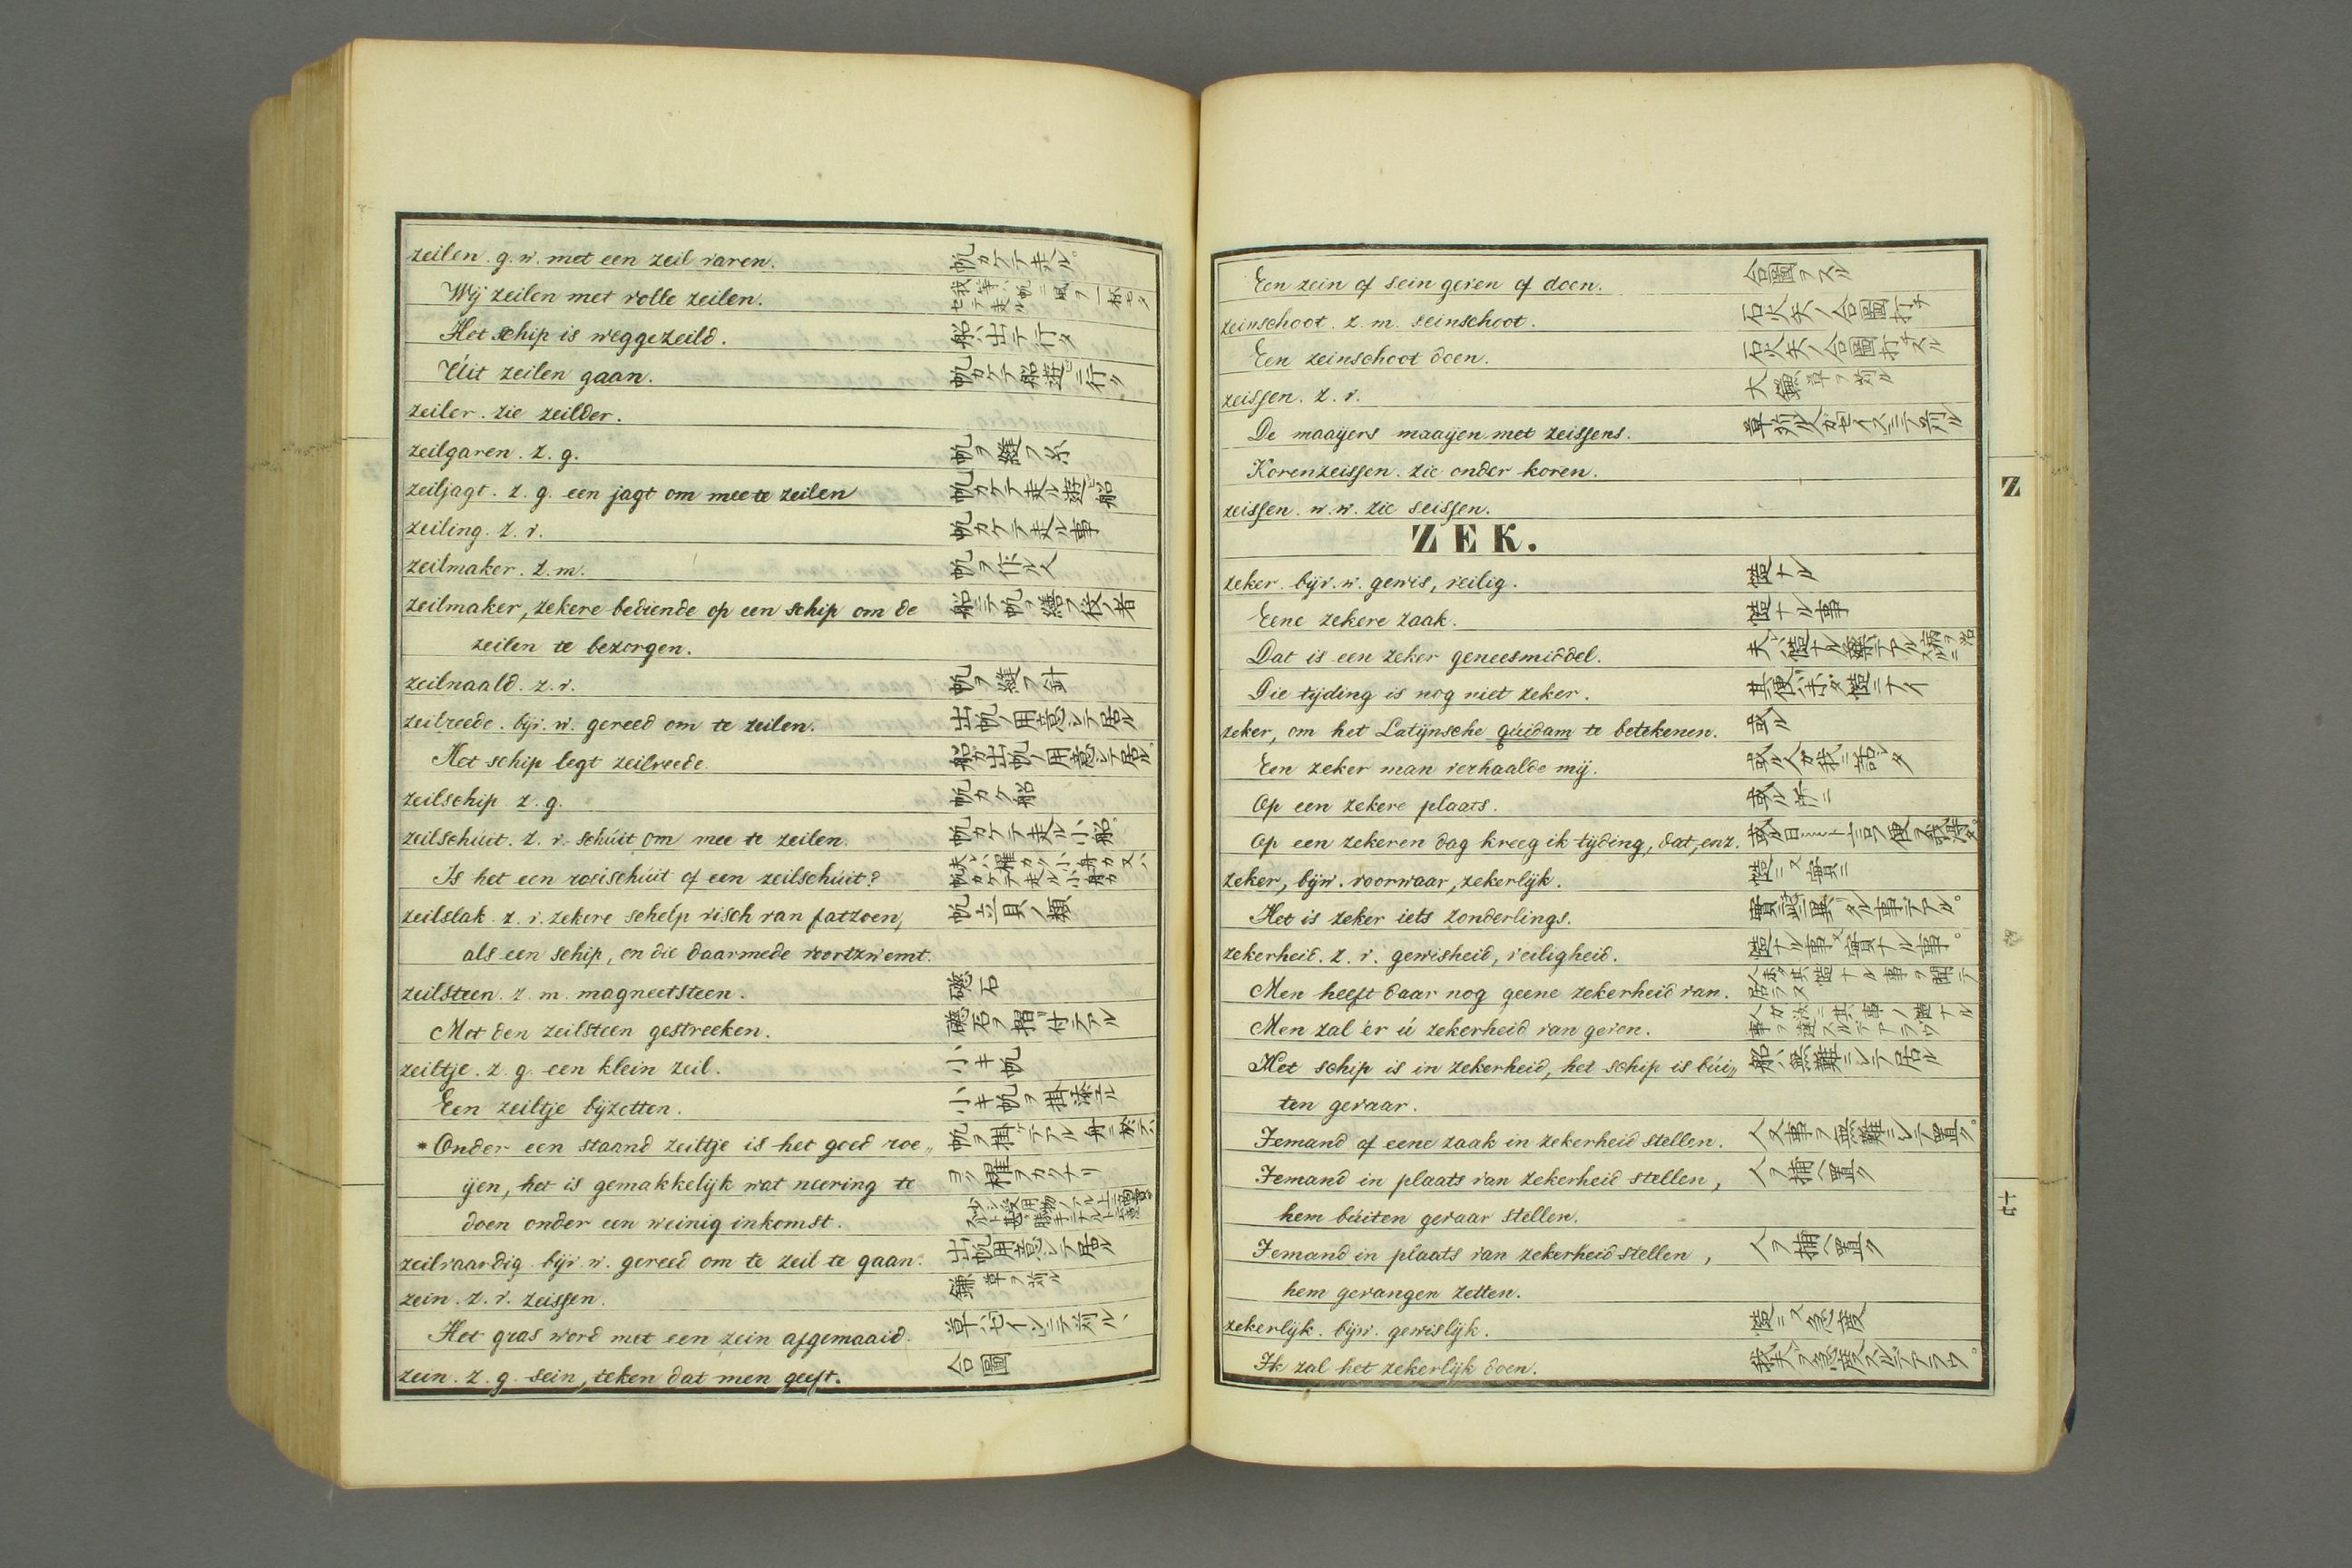 zeilen. g. w. met een zeil varen. 帆カケテ走ル。
Wij zeilen met volle zeilen. 我等ハ帆ニ風ヲ一杯モタセテ走ル
Het schip is weggezeild. 船ハ出テ行タ
Uit zeilen gaan. 帆カケテ船遊ビニ行ク
zeiler. zie zeilder.
zeilgaren. z. g. 帆ヲ縫フ糸
zeiljagt. z. g. een jagt om mee te zeilen 帆カケテ走ル遊ビ船
zeiling. z. v. 帆カケテ走ル事
zeilmaker. z. m. 帆ヲ作ル人
zeilmaker, zekere bediende op een schip om de 船ニテ帆ヲ繕フ役ノ者
zeilen te bezorgen.
zeilnaald. z. v. 帆ヲ縫フ針
zeilreede. bijv. w. gereed om te zeilen. 出帆ノ用意シテ居ル
Het schip legt zeilreede. 船ガ出帆ノ用意シテ居ル。
zeilschip z. g. 帆カケ船
zeilschuit. z. v. schuit om mee te zeilen. 帆カケテ走ル小船。
Is het een roeischuit of een zeilschuit? 夫ハ櫂カク小舟カ又ハ帆カケテ走ル小舟カ
zeilslak. z. v. zekere schelp visch van fatzoen, 帆立貝ノ類
als een schip, en die daarmede voortzwemt.
zeilsteen. z. m. magneetsteen. 磁石
Met den zeilsteen gestreeken. 磁石ヲ摺付テアル
zeiltje. z. g. een klein zeil. 小キ帆
Een zeiltje bijzetten. 小キ帆ヲ掛添ル
* Onder een staand zeiltje is het goed roe„ 帆ヲ掛テアル舟ニ於テハ
ijen, het is gemakkelijk wat neering te ヨク櫂ヲカクナリ
doen onder een weinig inkomst.
zeilvaardig. bijv. w. gereed om te zeil te gaan. 出帆用意シテ居ル
zein. z. v. zeissen. 鎌 草ヲ苅ル
Het gras word met een zein afgemaaid. 草ハセインニテ苅ル、
zein. z. g. sein, teken dat men geeft. 合圖
Een zein of sein geven of doen. 合圖ヲスル
zeinschoot. z. m. seinschoot. 石火矢ノ合圖打チ
Een zeinschoot doen. 石火矢ノ合圖打チスル
zeissen. z. v. 大鎌 草ヲ苅ル
De maaijers maaijen met zeissens. 草苅ル人ガセイスニテ苅ル
Korenzeissen. zie onder koren.
zeissen. w. w. zie seissen.
ZEK.
Z
zeker. bijv. w. gewis, veilig. 慥ナル
Eene zekere zaak. 慥ナル事
Dat is een zeker geneesmiddel. 夫ハ慥ナル藥デアル 病ヲ治スルニ
Die tijding is nog niet zeker. 其便ハ未タ慥ニナイ
zeker, om het Latijnsche quidam te betekenen. 或ル
Een zeker man verhaalde mij. 或ル人ガ我ニ話シタ
Op een zekere plaats. 或ル所ニ
Op een zekeren dag kreeg ik tijding, dat, enz. 或ル日
zeker, bijw. voorwaar, zekerlijk. 慥ニ又實ニ
Het is zeker iets zonderlings.
zekerheid. z. v. gewisheid, veiligheid. 慥ナル事又實ナル事。
Men heeft daar nog geene zekerheid van. 人未タ其慥ナル事ヲ聞テ居ラヌ
Men zal 'er u zekerheid van geven. 人ガ汝ニ其事ノ慥ナル事ヲ達スルデアラウ
Het schip is in zekerheid, het schip is bui„ 船ハ無難ニシテ居ル
ten gevaar.
Iemand of eene zaak in zekerheid stellen. 人又事ヲ無難ニシテ置ク。
Iemand in plaats van zekerheid stellen, 人ヲ捕ヘ置ク
hem buiten gevaar stellen.
Iemand in plaats van zekerheid stellen, 人ヲ捕ヘ置ク
hem gevangen zetten.
zekerlijk. bijw. gewislijk. 慥ニ又急度
Ik zal het zekerlijk doen. 我夫ヲ急度スルデアラウ。